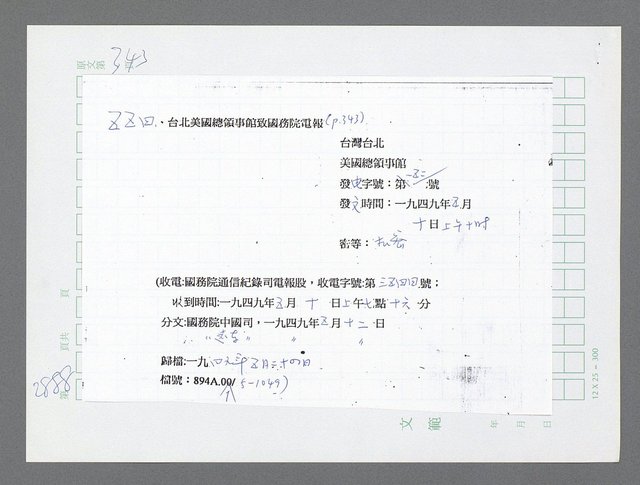 原文第343頁
五五四、台北美國總領事館致國務院電報(p.343)
台灣台北
美國總領事館
發電字號：第一五二號
發文時間：一九四九年五月
十日上午十時
密等：機密
(收電:國務院通信紀錄司電報股，收電字號:第三五四四號；
收到時間:一九四九年五月十一日上午七點十六分
分文:國務院中國司，一九四九年五月十二日
歸檔:一九四九年五月二十四日
檔號：894A.00/5-1049)
頁
頁共
2888
第
文範
年 月 日
12 X 25 = 300